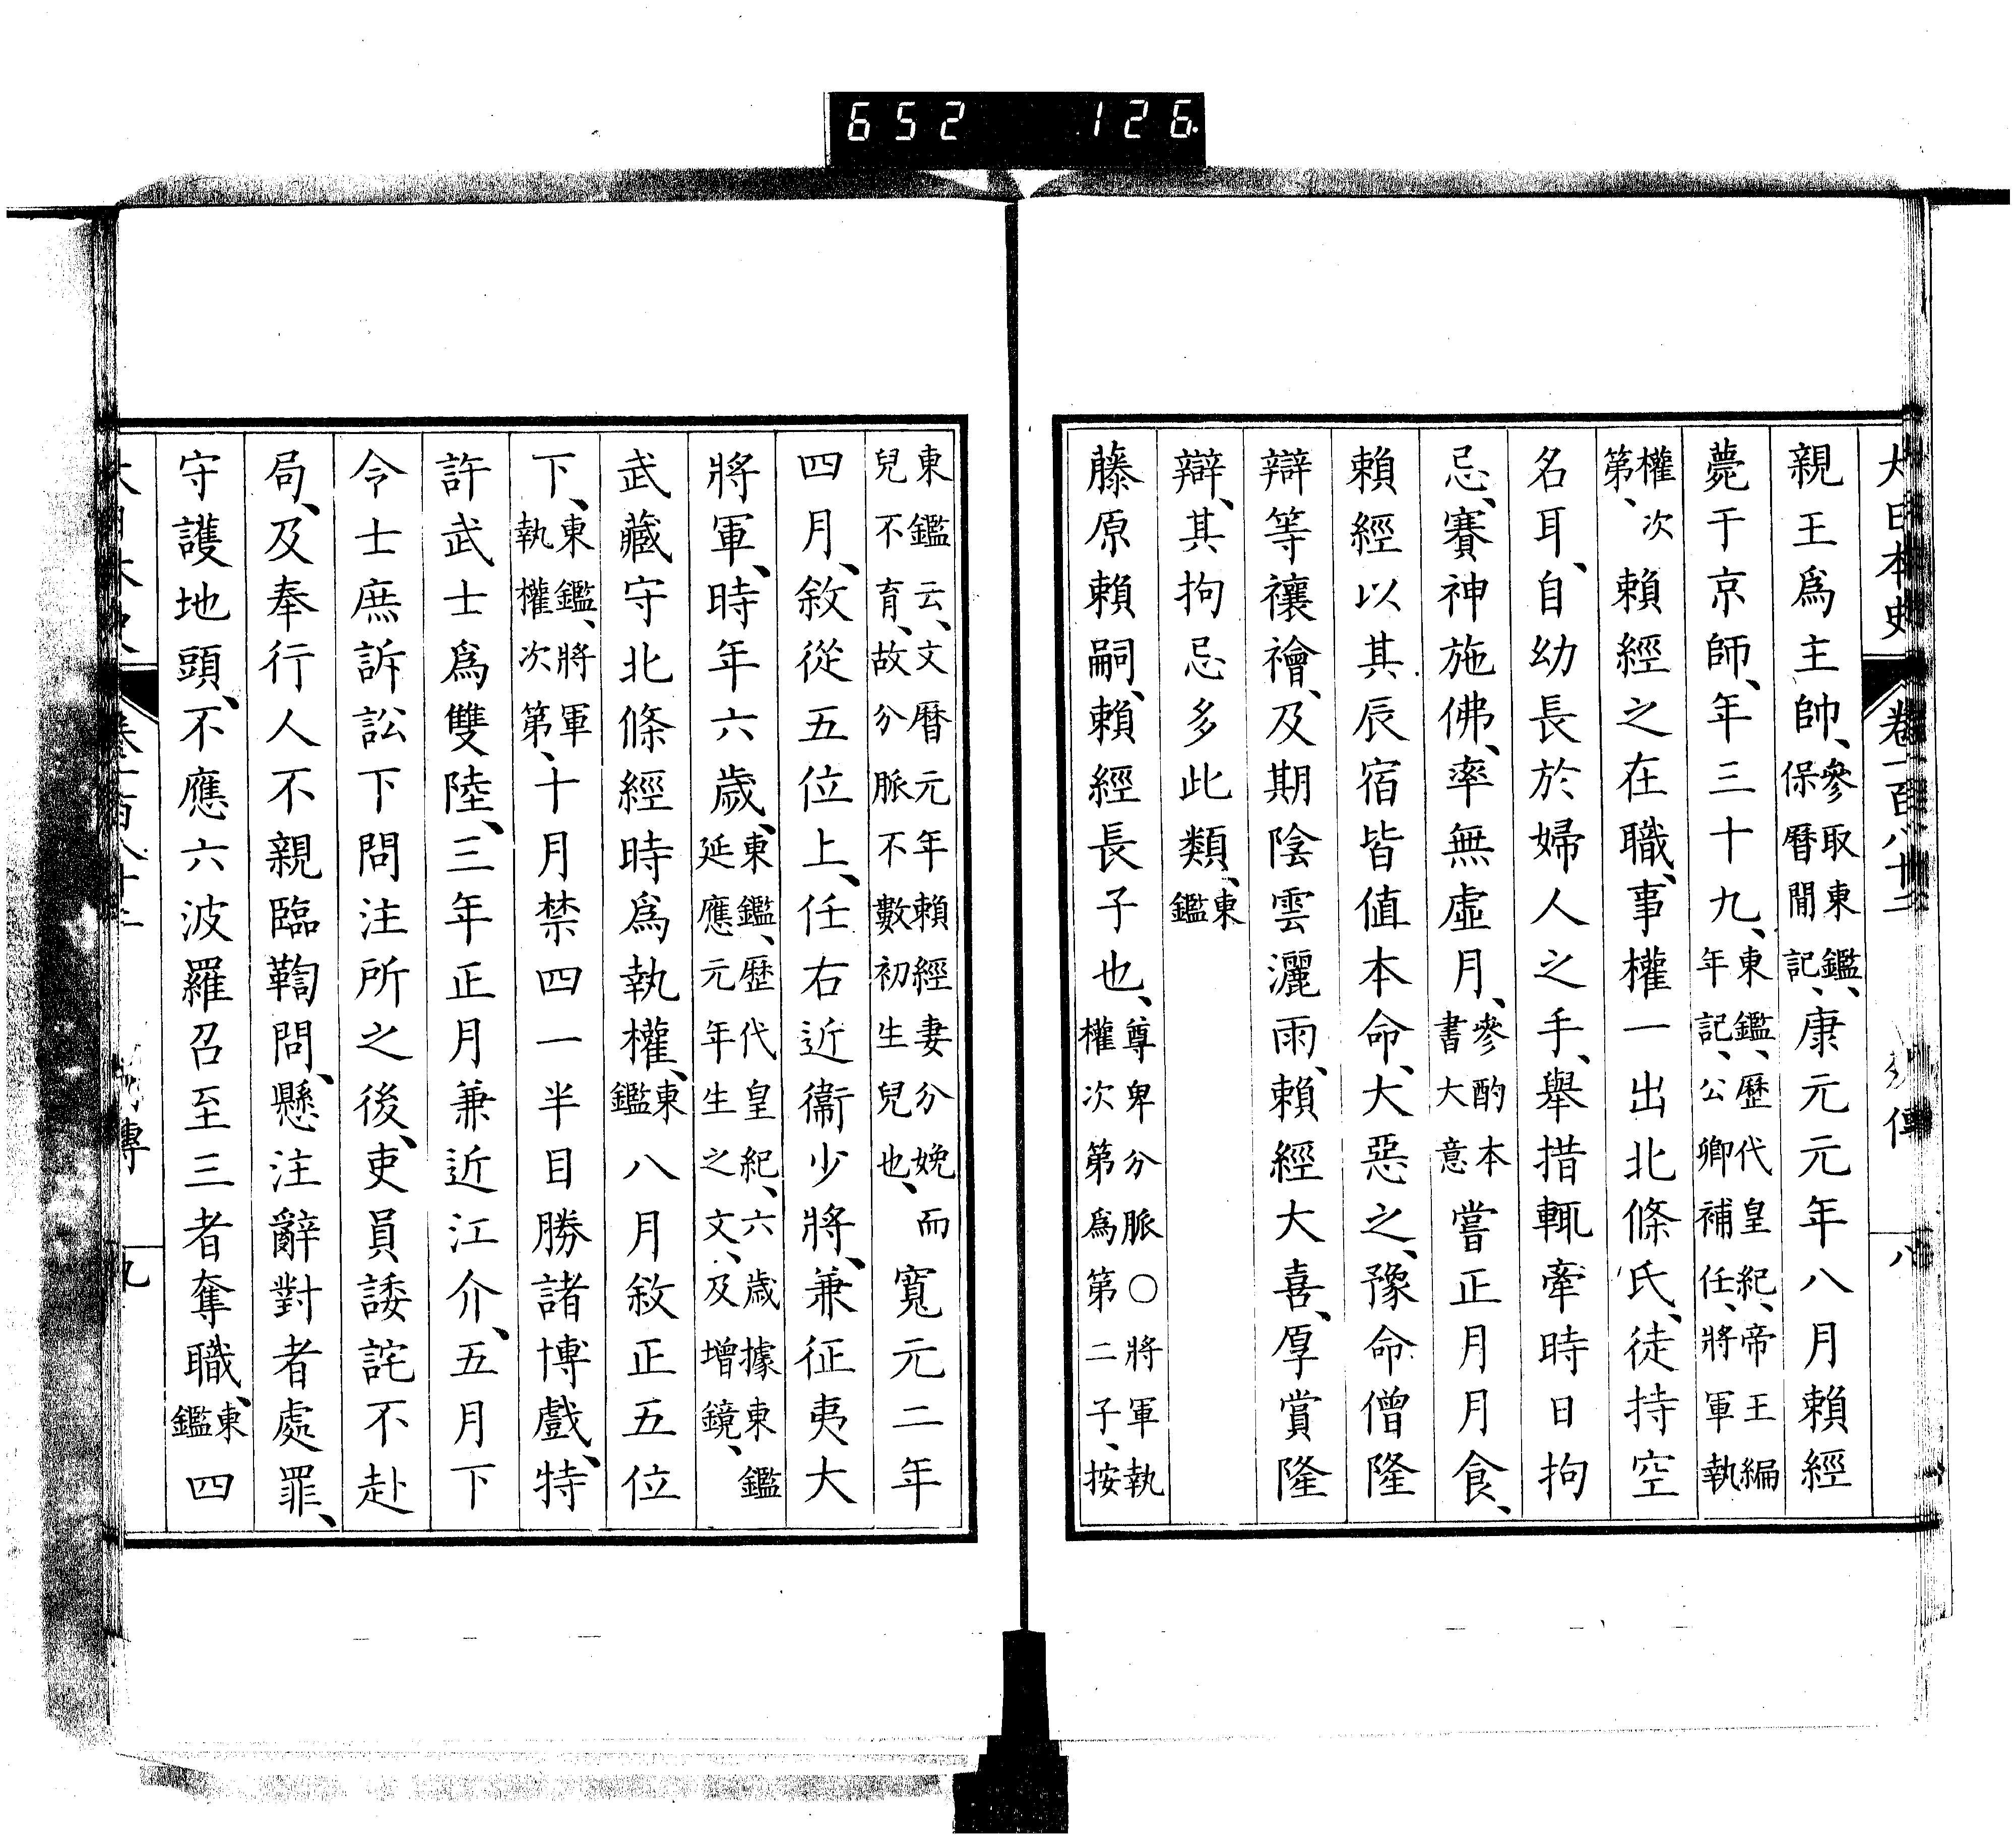 652 126
大日本史 卷一百八十二 傳 八
親王爲主帥、參取東鑑、保曆閒記、康元元年八月賴經
薨于京師、年三十九、東鑑、歷代皇紀、帝王編年記、公卿補任、將軍執
權次第、賴經之在職、事權一出北條氏、徒持空
名耳、自幼長於婦人之手、舉措輒牽時日拘
忌、賽神施佛、率無虛月、參酌本書大意嘗正月月食、
賴經以其辰宿皆値本命、大惡之、豫命僧隆
辯等禳禬、及期陰雲灑雨、賴經大喜、厚賞隆
辯、其拘忌多此類、東鑑
藤原賴嗣、賴經長子也、尊卑分脈○將軍執權次第爲第二子、按
東鑑云、文曆元年賴經妻分娩、而兒不育、故分脈不數初生兒也、寬元二年
四月、敘從五位上、任右近衞少將、兼征夷大
將軍、時年六歲、東鑑、歷代皇紀、六歲據東鑑延應元年生之文、及增鏡、
武藏守北條經時爲執權、東鑑八月敘正五位
下、東鑑、將軍執權次第、十月禁四一半目勝諸博戲、特
許武士爲雙陸、三年正月兼近江介、五月下
令士庶訴訟下問注所之後、吏員諉詫不赴
局、及奉行人不親臨鞫問、懸注辭對者處罪、
守護地頭、不應六波羅召至三者奪職、東鑑四
傳 九